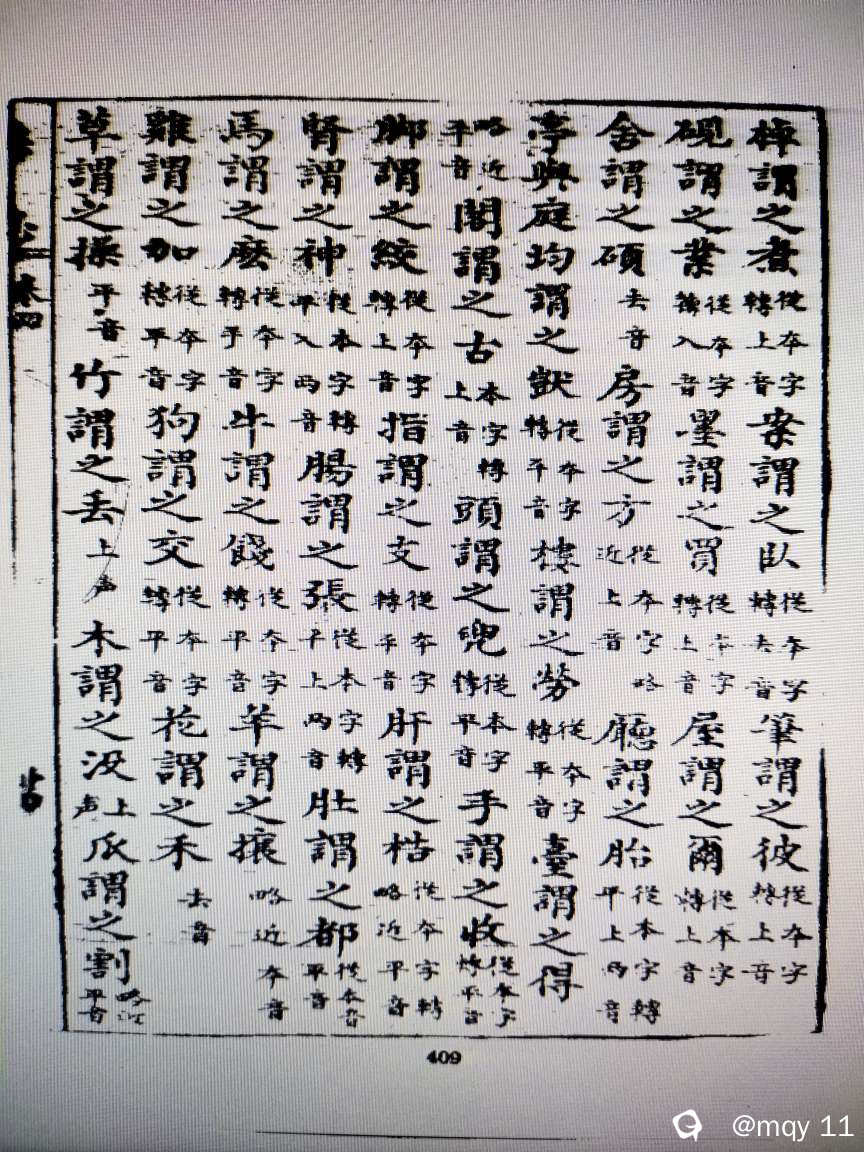 棹謂之煮從本字轉上音案謂之臥從本字轉去音筆謂之彼從本字轉上音
硯謂之業從本字轉入音墨謂之買從本字轉上音屋謂之爾從本字轉上音
舍謂之碩去音房謂之方從本字略近上音廳謂之胎從本字轉平上兩音
亭與庭均謂之獃從本字轉平音樓謂之勞從本字轉平音臺謂之得
略近平音閣謂之古本字轉上音頭謂之兜從本字轉平音手謂之收從本字轉平音
脚謂之絞從本字轉上音指謂之支從本字轉平音肝謂之楛從本字轉略近平音
腎謂之神從本字轉平入兩音腸謂之張從本字轉平上兩音肚謂之都從本音平音
馬謂之麽從本字轉平音牛謂之餞從本字轉平音羊謂之攘略近本音
雞謂之加從本字轉平音狗謂之交從本字轉平音花謂之禾去音
草謂之操平音竹謂之丟上声木謂之没上声瓜謂之割略近平音
卷四
409
@mqy 11